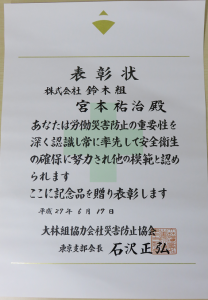 表彰状
株式会社 鈴木組
宮本祐治殿
あなたは労働災害防止の重要性を
深く認識し常に率先して安全衛生
の確保に努力され他の模範と認め
られます
ここに記念品を贈り表彰します
平成27年6月19日
大林組協力会社災害防止協会
東京支部会長 石沢正弘